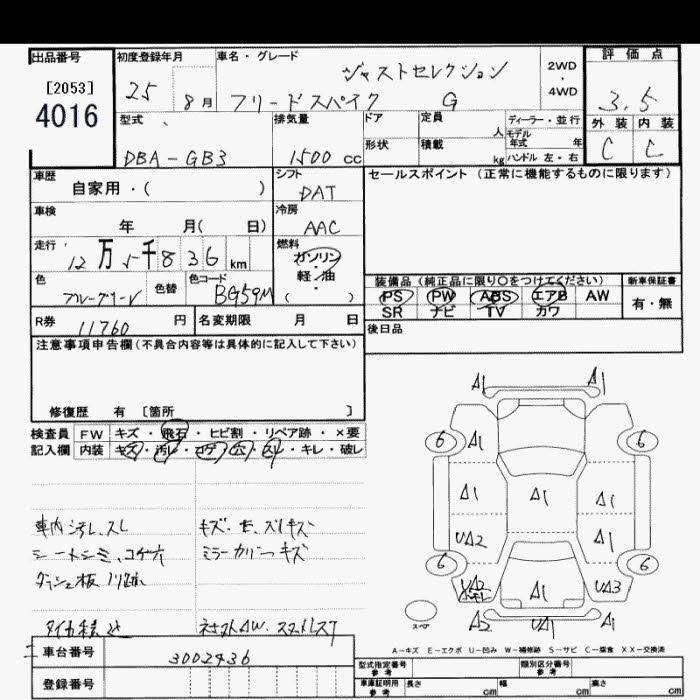 出品番号
[2053]
4016
初度登録年月
25 8月
車名・グレード
ジャストセレクション
フリードスパイク G
2WD
・
4WD
評価点
3.5
外装 内装
C C
型式
DBA-GB3
排気量
1500 cc
ドア
定員
人
形状
積載
kg
ディーラー・並行
モデル
年式 年
ハンドル 左・右
車歴
自家用・( )
シフト
DAT
セールスポイント (正常に機能するものに限ります)
車検
年 月( 日)
冷房
AAC
走行
12万5千836km
燃料
ガソリン
・
軽油
( )
色
ブルーグリーン
色替
色コード
BG59M
装備品 (純正品に限り○をつけてください)
PS PW ABS エアB AW
SR ナビ TV カワ
新車保証書
有・無
R券 11760 円
名変期限 月 日
後日品
注意事項申告欄(不具合内容等は具体的に記入して下さい)
修復歴 有 〔箇所 〕
検査員 FW キズ・飛石・ヒビ割・リペア跡・×要
記入欄 内装 キズ・汚レ・コゲ・穴・スレ・キレ・破レ
車内汚レ、スレ
シートシミ、コゲ穴
ダッシュ板ノリ跡
キズ・
ミラーカバーキズ
A1 A1
6 A1 6
A1 A1 A1
UA2 A1
6 6
UA2 A1 UA3
スペア A2 UA1 A1
A-キズ E-エクボ U-凹み W-補修跡 S-サビ C-腐食 XX-交換済
車台番号 3002436
登録番号
型式指定番号
参考
類別区分番号
参考
車庫証明用
参考
長さ cm
幅 cm
高さ cm